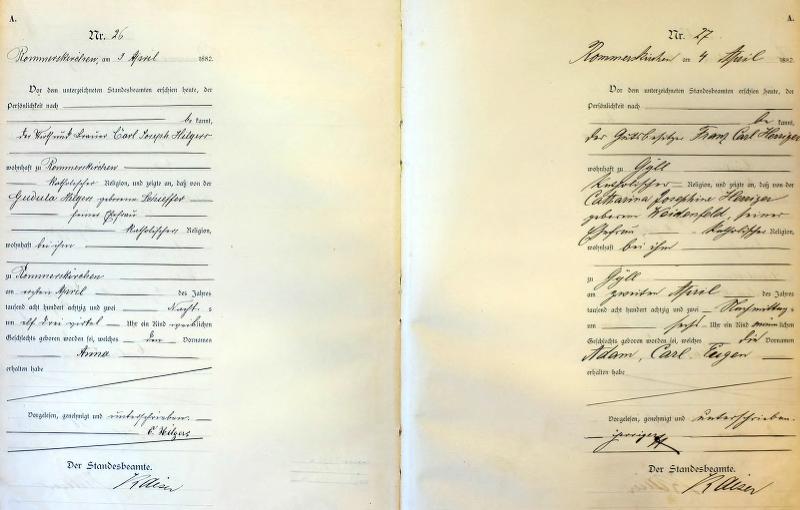 A.
Nr. 26
Rommerskirchen, am 3 April 1882.
Vor dem unterzeichneten Standesbeamten erschien heute, der
Persönlichkeit nach
be kannt,
der Wirth und Brauer Carl Joseph Hilgers
wohnhaft zu Rommerskirchen
katholischer Religion, und zeigte an, daß von der
Gudula Hilgers geborene Schieffer
seiner Ehefrau
katholischer Religion,
wohnhaft bei ihm
zu Rommerskirchen
am ersten April des Jahres
tausend acht hundert achtzig und zwei Nacht-
um elf drei virtel Uhr ein Kind weiblichen
Geschlechts geboren worden sei, welches den Vornamen
Anna
erhalten habe
Vorgelesen, genehmigt und unterschrieben.
C. Hilgers
Der Standesbeamte.
Kaiser
A.
Nr. 27
Rommerskirchen am 4 April 1882.
Vor dem unterzeichneten Standesbeamten erschien heute, der
Persönlichkeit nach
be kannt,
der Gutsbesitzer Franz Carl
wohnhaft zu Gyll
katholischer Religion, und zeigte an, daß von der
Catharina Josephine
geborene Weidenfeld, seiner
Ehefrau katholischer Religion,
wohnhaft bei ihm
zu Gyll
am zweiten April des Jahres
tausend acht hundert achtzig und zwei Nachmittag-
um sechs Uhr ein Kind männlichen
Geschlechts geboren worden sei, welches die Vornamen
Adam, Carl Eugen
erhalten habe
Vorgelesen, genehmigt und unterschrieben.
Der Standesbeamte.
Kaiser